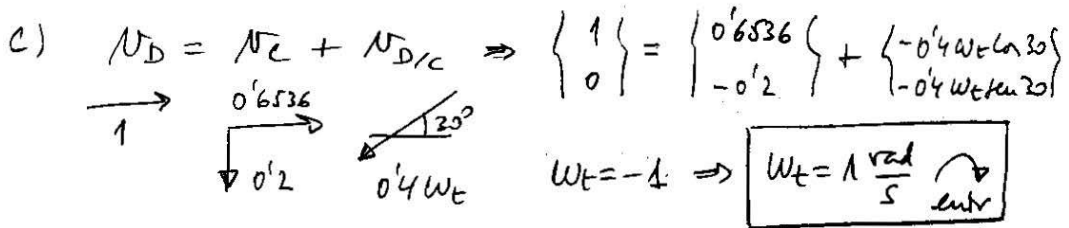 c) V_D = V_C + V_{D/C} ⇒ { 1 0 } = { 0'6536 -0'2 } + { -0'4ω_t cos 30 -0'4ω_t sen 30 }
1
0'6536
0'2
30°
0'4 ω_t
ω_t = -1 ⇒ ω_t = 1 rad/s
entr